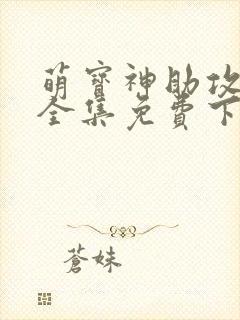 萌寶神助攻
全集免費下
蒼妹